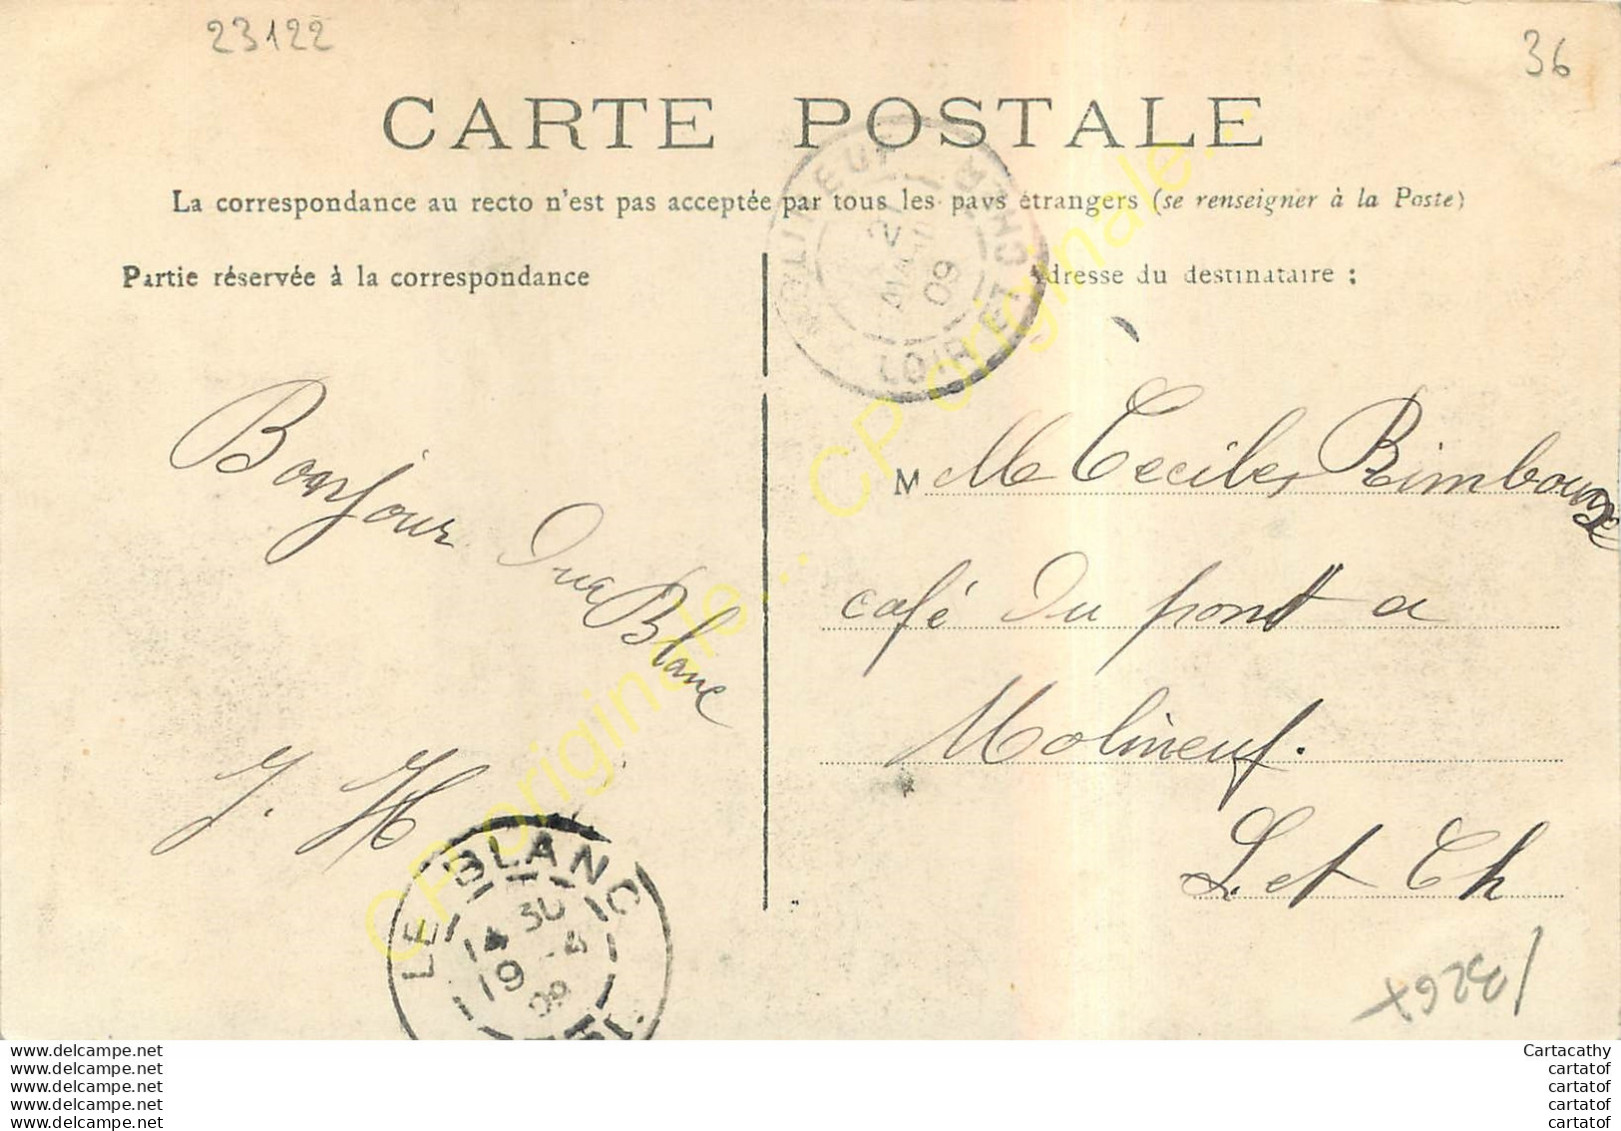 23122
36
CARTE POSTALE
La correspondance au recto n'est pas acceptée par tous les pays étrangers (se renseigner à la Poste)
Partie réservée à la correspondance
Adresse du destinataire :
LOIR ET CHER
21
09
Bonjour
Du Blanc
J. H
M Me Ceciles Rimbourg
café Du pont a
Molineuf.
L. et Ch
LE BLANC
14 30
19 -5
09
CP originale... CP originale...
www.delcampe.net
www.delcampe.net
www.delcampe.net
www.delcampe.net
www.delcampe.net
Cartacathy
cartatof
cartatof
cartatof
cartatof